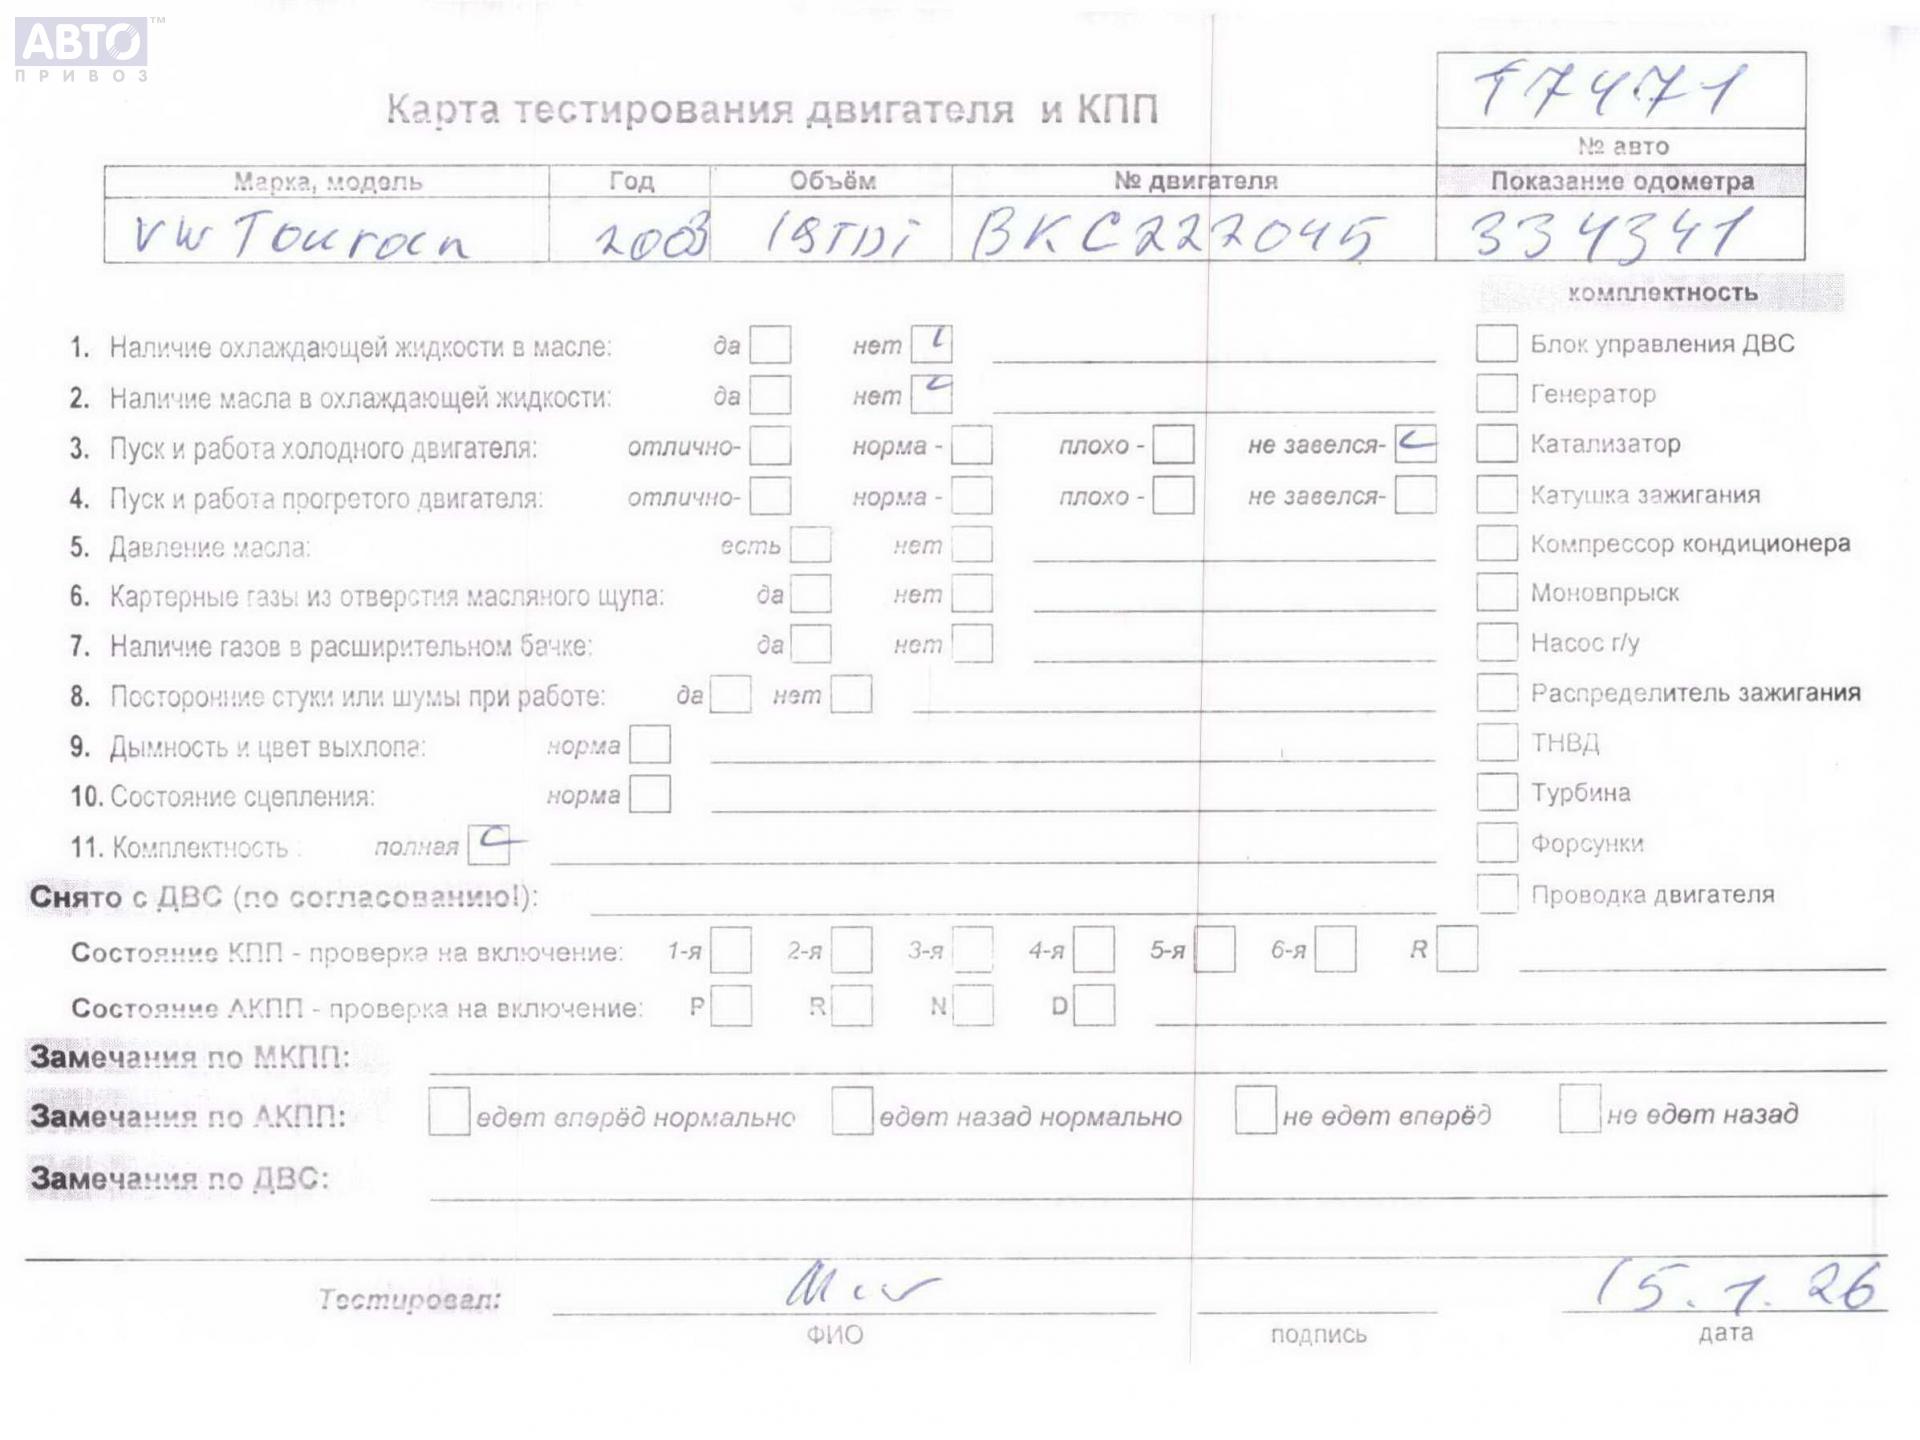 АВТО™
ПРИВОЗ
Карта тестирования двигателя и КПП
17471
№ авто
Марка, модель Год Объём № двигателя Показание одометра
VW Touran 2003 19TDi BKC222045 334341
комплектность
1. Наличие охлаждающей жидкости в масле: да нет Блок управления ДВС
2. Наличие масла в охлаждающей жидкости: да нет Генератор
3. Пуск и работа холодного двигателя: отлично- норма - плохо - не завелся- Катализатор
4. Пуск и работа прогретого двигателя: отлично- норма - плохо - не завелся- Катушка зажигания
5. Давление масла: есть нет Компрессор кондиционера
6. Картерные газы из отверстия масляного щупа: да нет Моновпрыск
7. Наличие газов в расширительном бачке: да нет Насос г/у
8. Посторонние стуки или шумы при работе: да нет Распределитель зажигания
9. Дымность и цвет выхлопа: норма ТНВД
10. Состояние сцепления: норма Турбина
11. Комплектность : полная Форсунки
Снято с ДВС (по согласованию!): Проводка двигателя
Состояние КПП - проверка на включение: 1-я 2-я 3-я 4-я 5-я 6-я R
Состояние АКПП - проверка на включение: P R N D
Замечания по МКПП:
Замечания по АКПП: едет вперёд нормально едет назад нормально не едет вперёд не едет назад
Замечания по ДВС:
Тестировал: 15.1.26
ФИО подпись дата